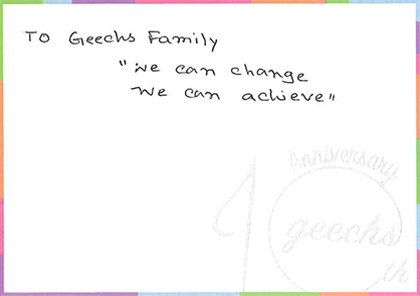 TO Geechs Family
"we can change
we can achieve"
Anniversary
10
geechs
th